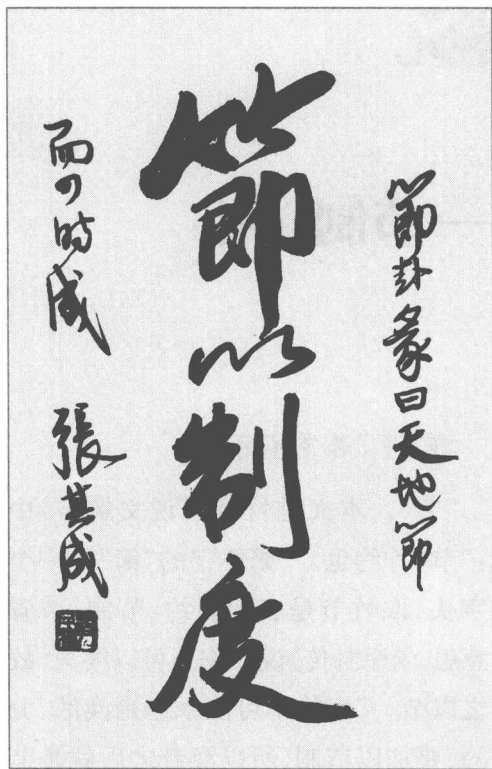 節卦彖曰天地節
節以制度
而四時成 張其成